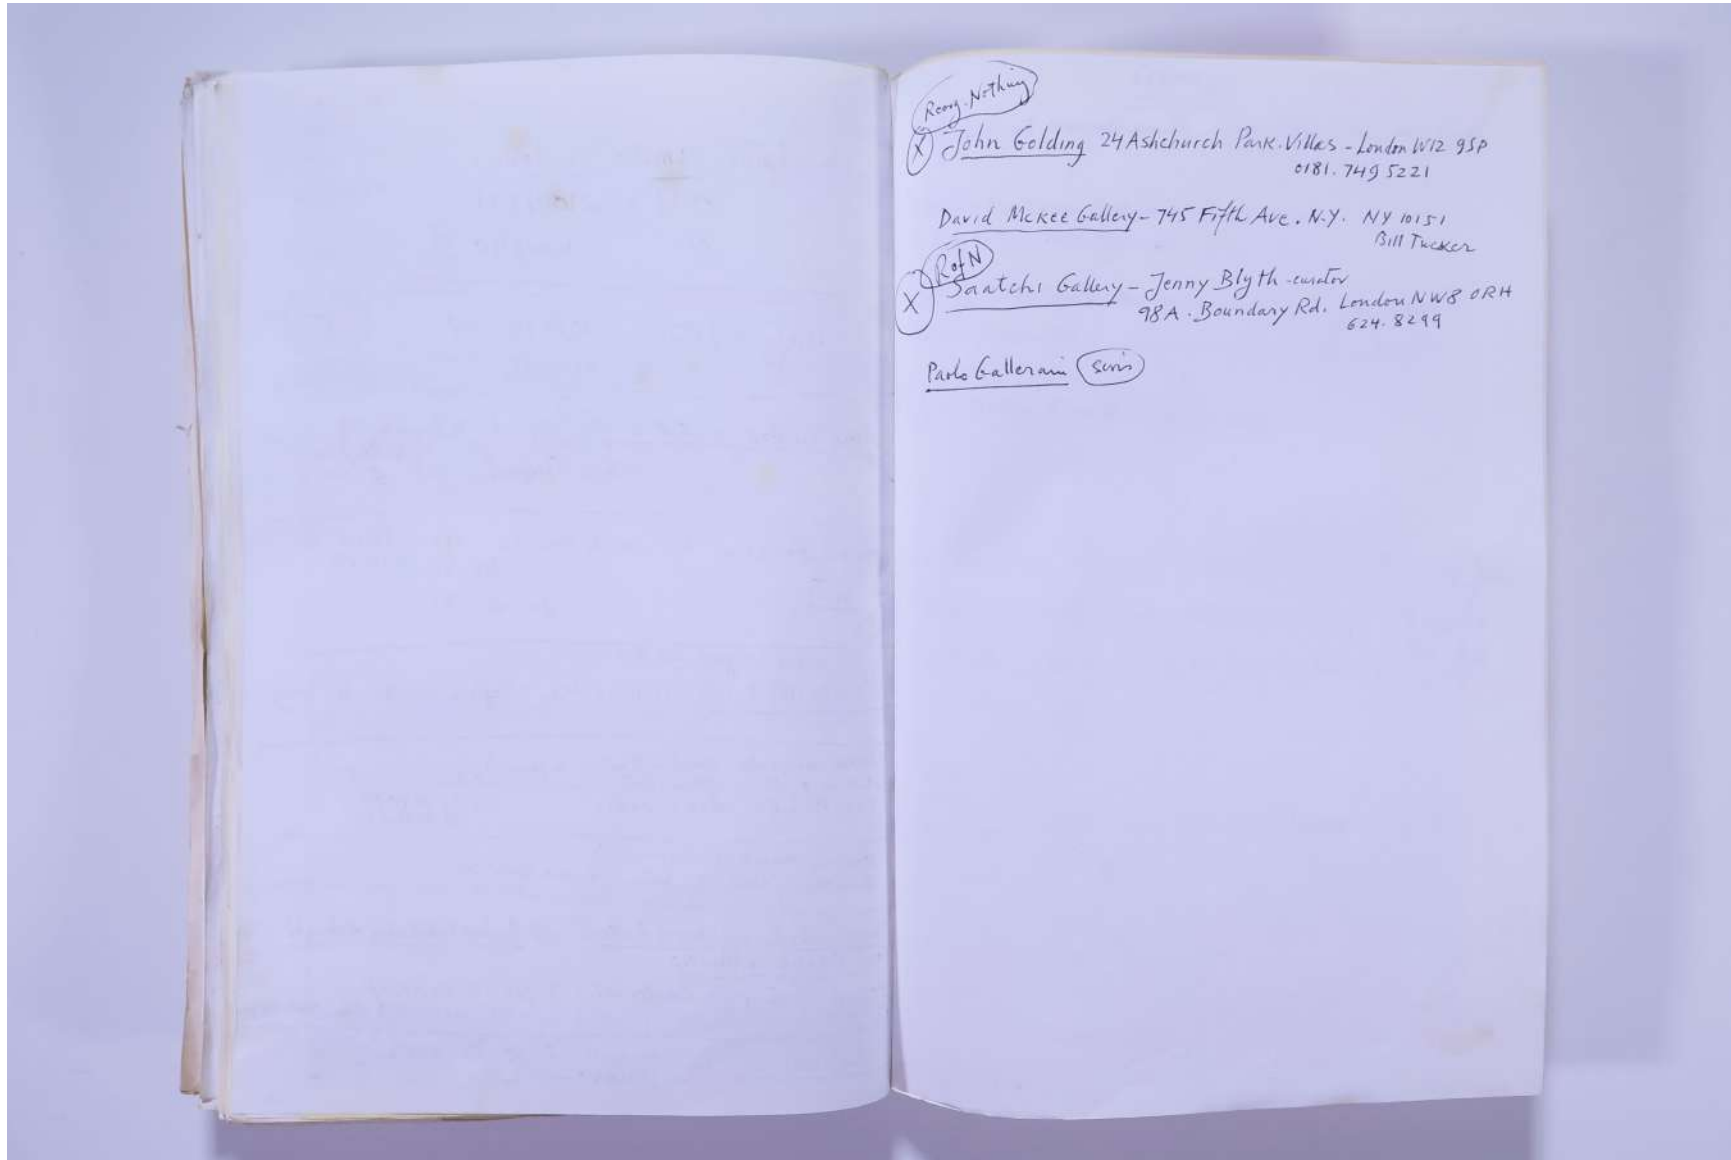 Reorg. Nothing
X John Golding 24 Ashchurch Park. Villas - London W12 9SP
0181. 749 5221
David McKee Gallery - 745 Fifth Ave. N.Y. NY 10151
Bill Tucker
R of N
X Saatchi Gallery - Jenny Blyth - curator
98A. Boundary Rd. London NW8 0RH
624. 8299
Paolo Gallerani